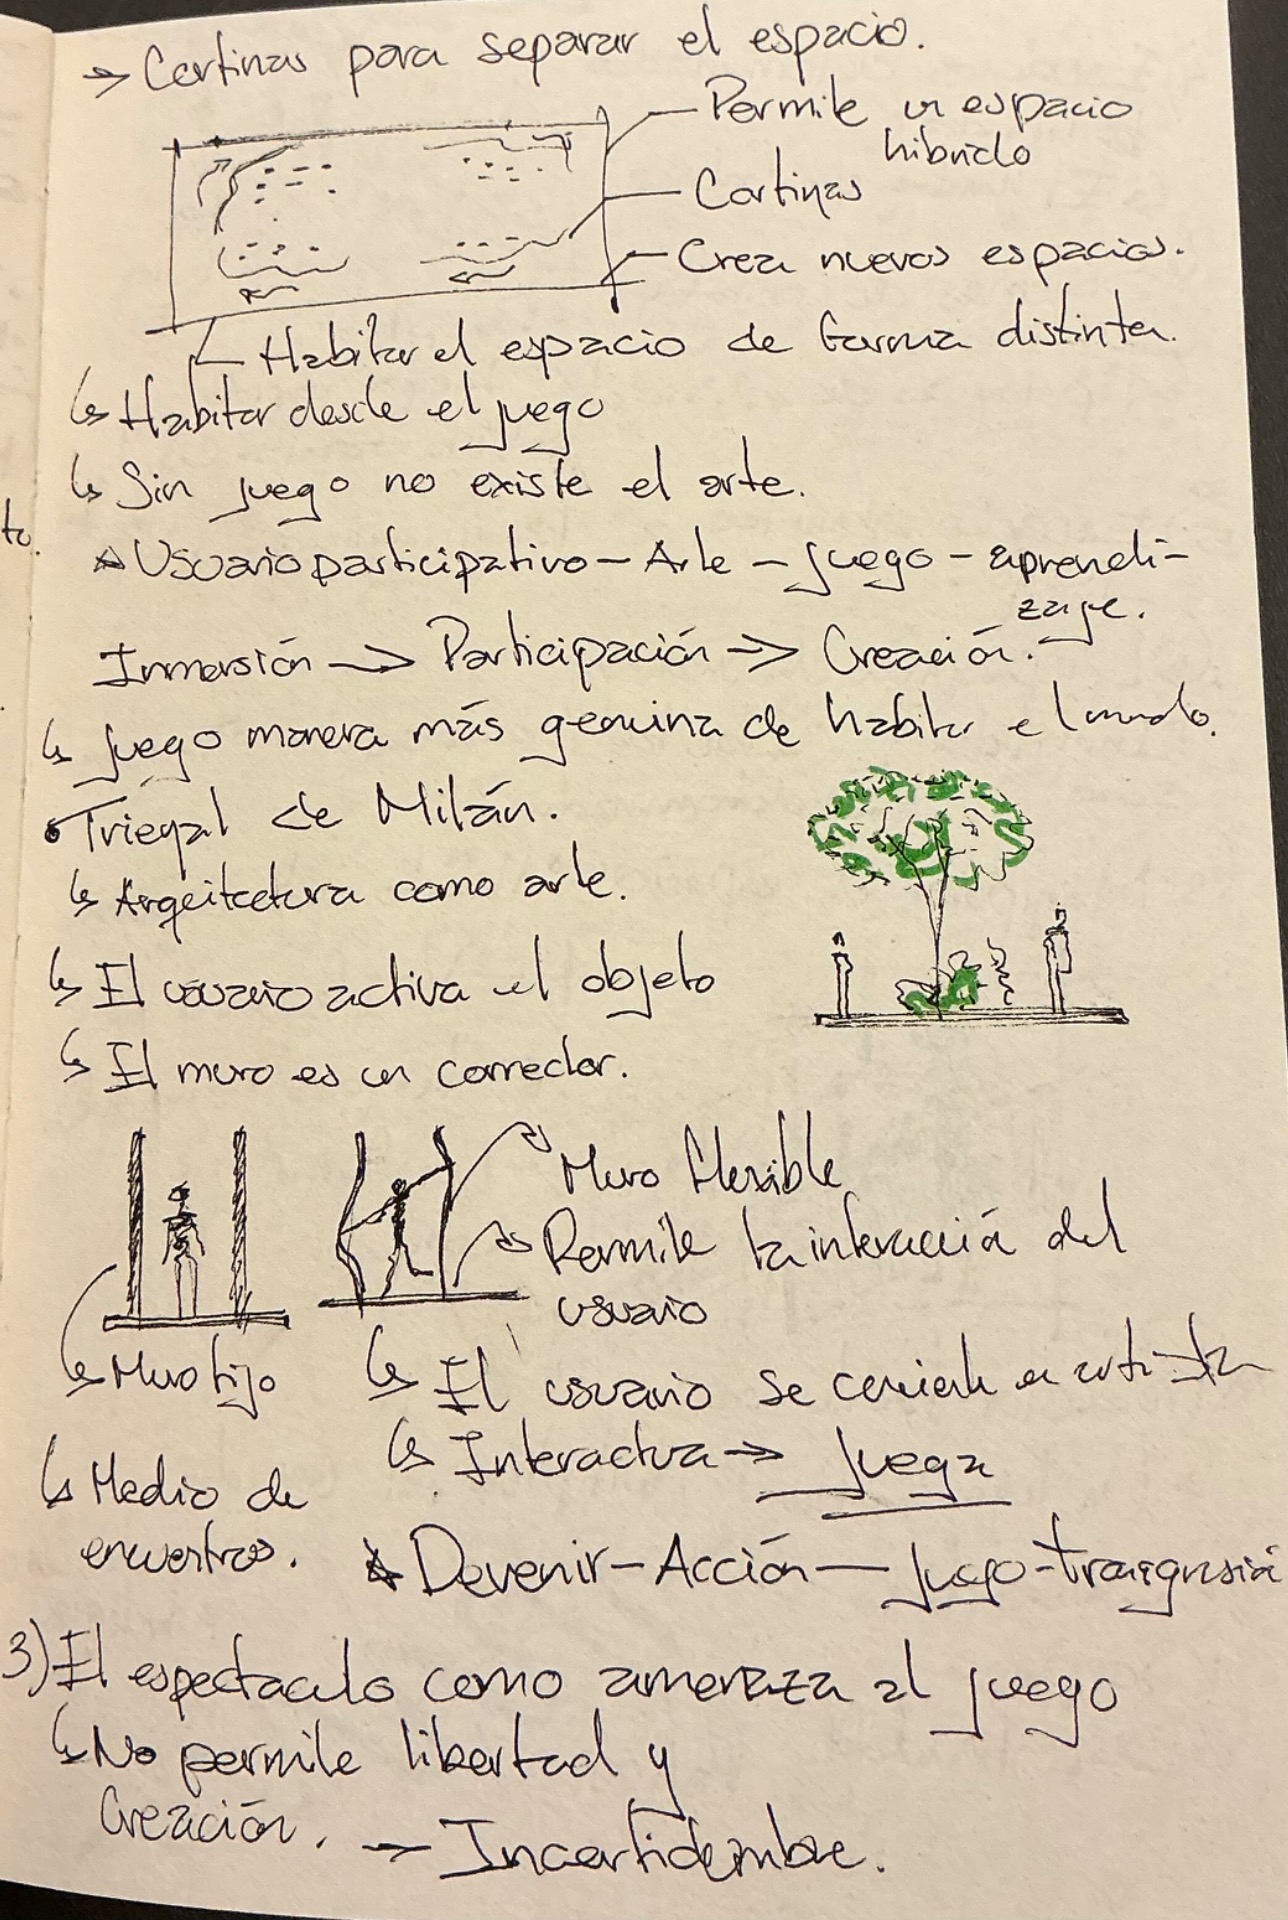 → Cortinas para separar el espacio.
Permite un espacio
híbrido
Cortinas
Crea nuevos espacios.
Habitar el espacio de forma distinta.
↳ Habitar desde el juego
↳ Sin juego no existe el arte.
Usuario participativo - Arte - juego - aprendi-
zaje.
Inmersión → Participación → Creación.
↳ juego manera más genuina de habitar el mundo.
• Trienal de Milán.
↳ Arquitectura como arte.
↳ El usuario activa el objeto
↳ El muro es un corredor.
Muro flexible
Permite la interacción del
usuario
↳ Muro fijo
↳ El usuario se convierte en artista
↳ Interactua → juega
↳ Medio de
encuentros.
Devenir - Acción - juego - transgresión
3) El espectaculo como amenaza al juego
↳ No permite libertad y
Creación.
→ Incertidumbre.